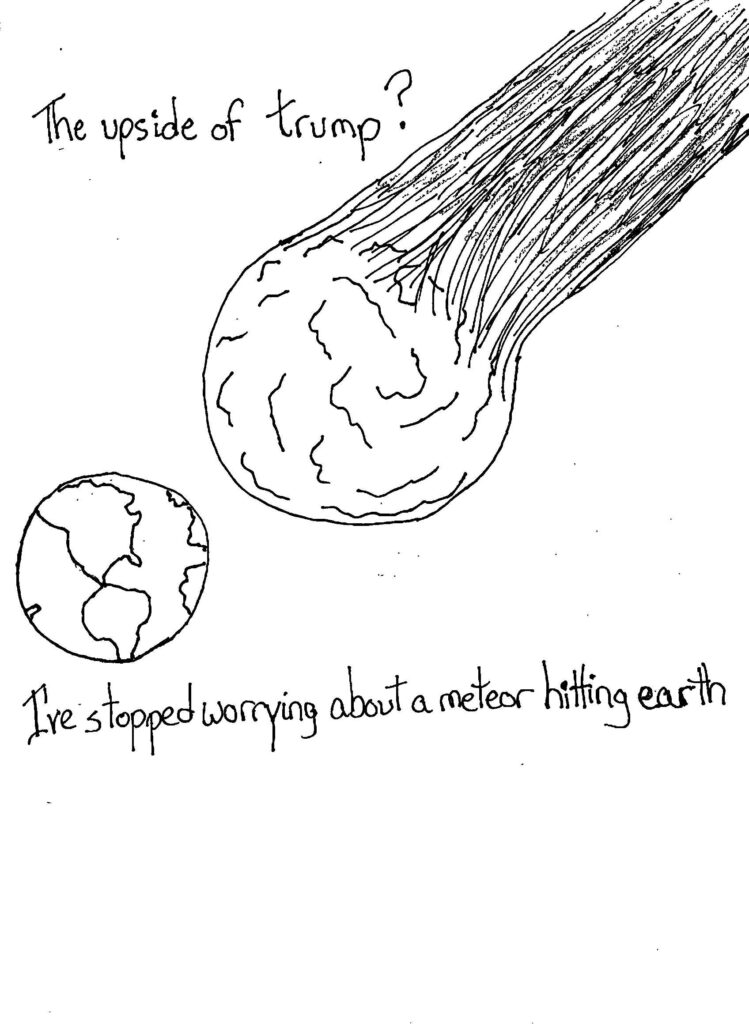 The upside of trump?
I've stopped worrying about a meteor hitting earth